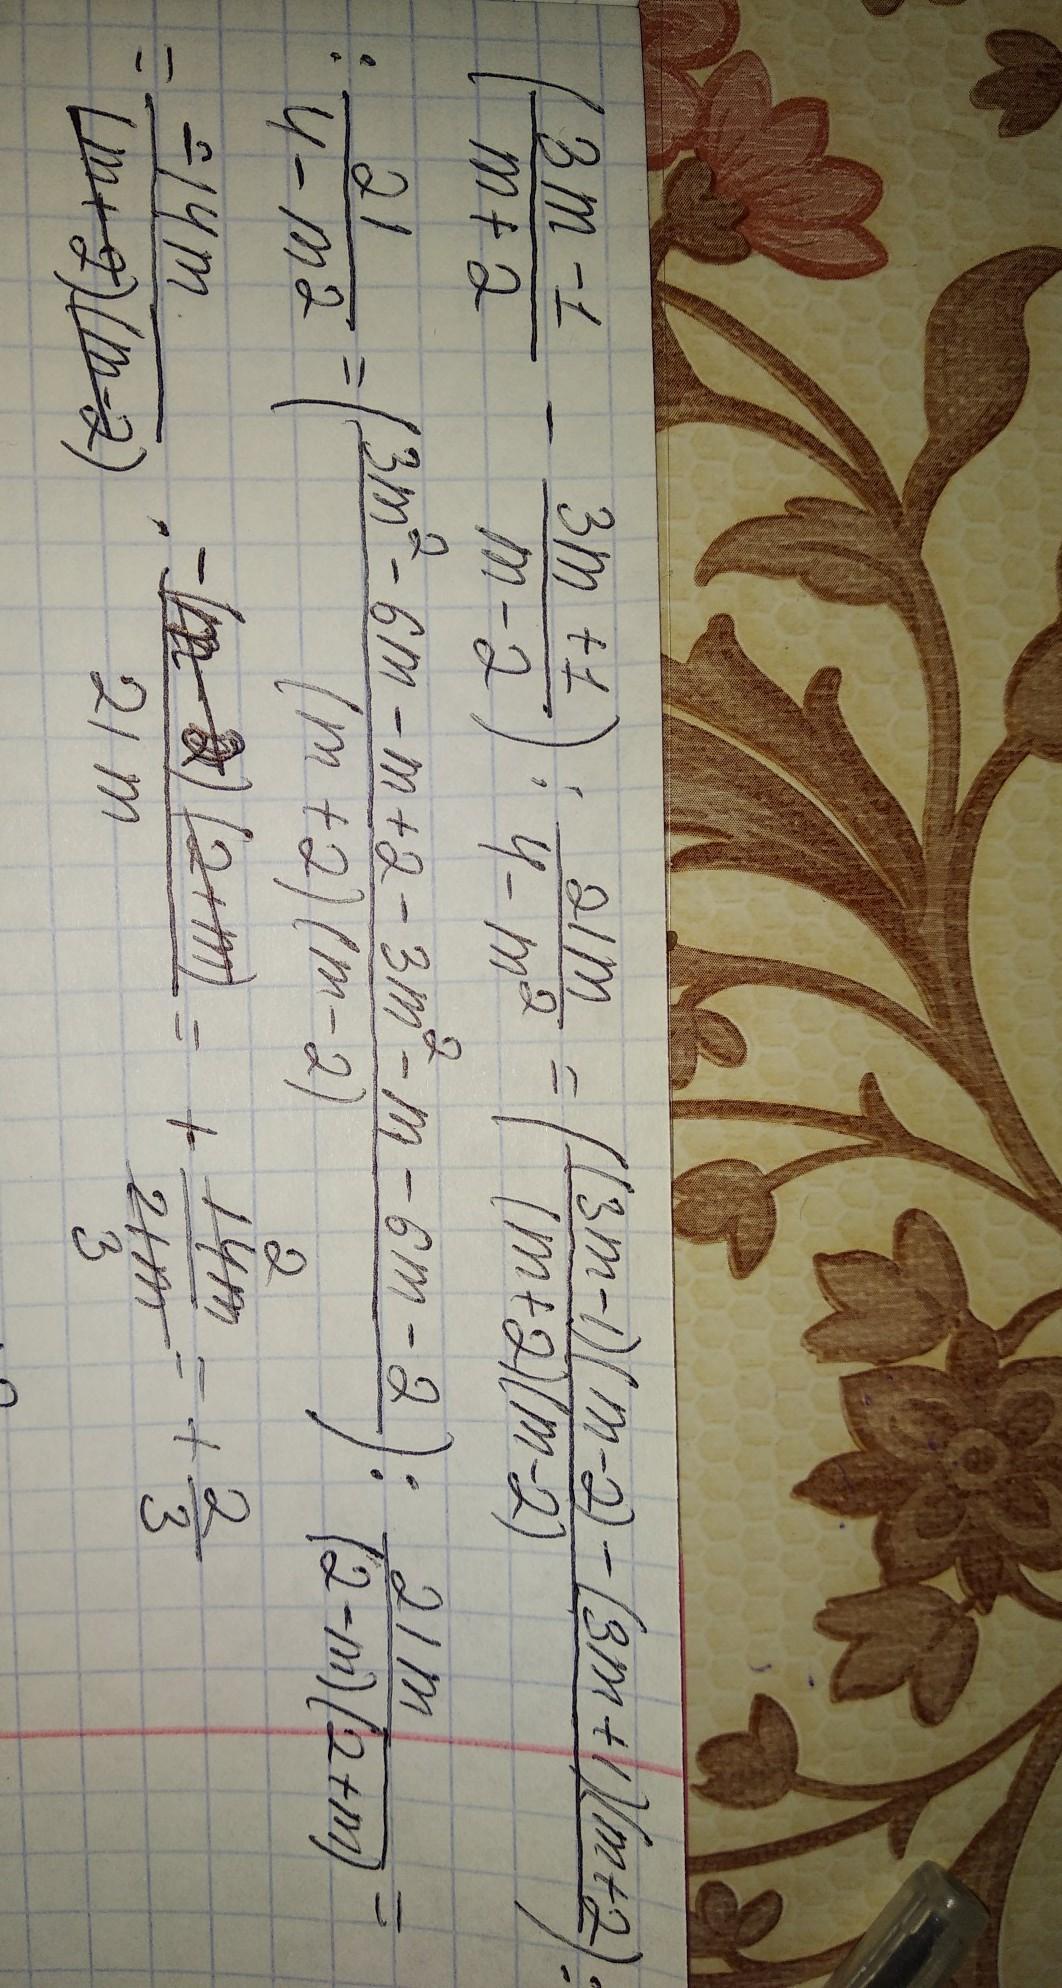 (3m-1/m+2 - 3m+1/m-2) : 21m/4-m² = ((3m-1)(m-2)-(3m+1)(m+2)/(m+2)(m-2)) :
: 21/4-m2 = (3m²-6m-m+2-3m²-m-6m-2/(m+2)(m-2)) : 21m/(2-m)(2+m) =
= -14m/(m+2)(m-2) · -(m-2)(2+m)/21m = + 14m/21m = + 2/3